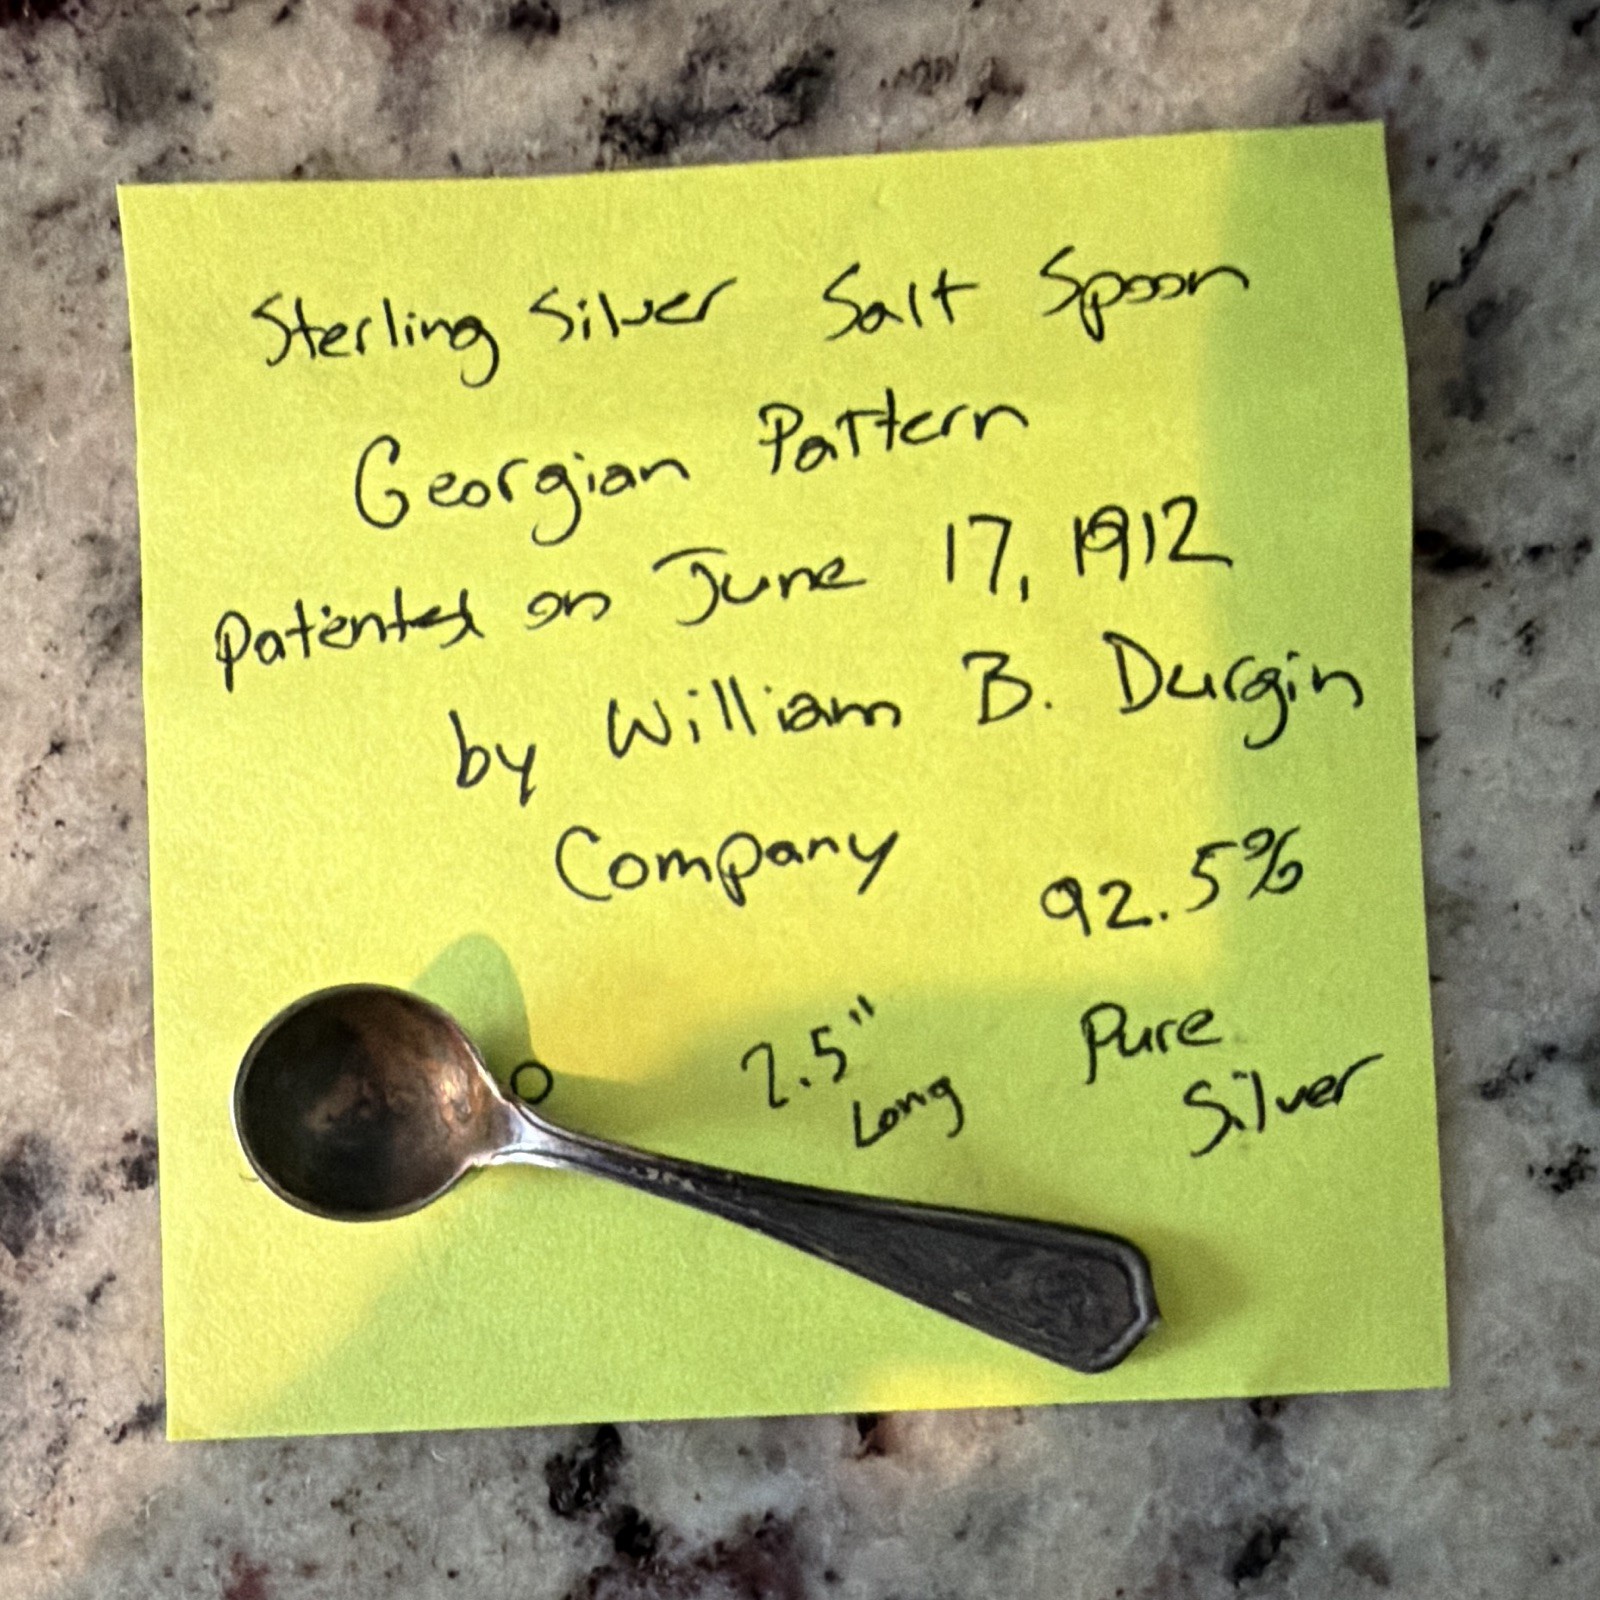 Sterling Silver Salt Spoon
Georgian Pattern
Patented on June 17, 1912
by William B. Durgin
Company
92.5%
2.5"
Long
Pure
Silver